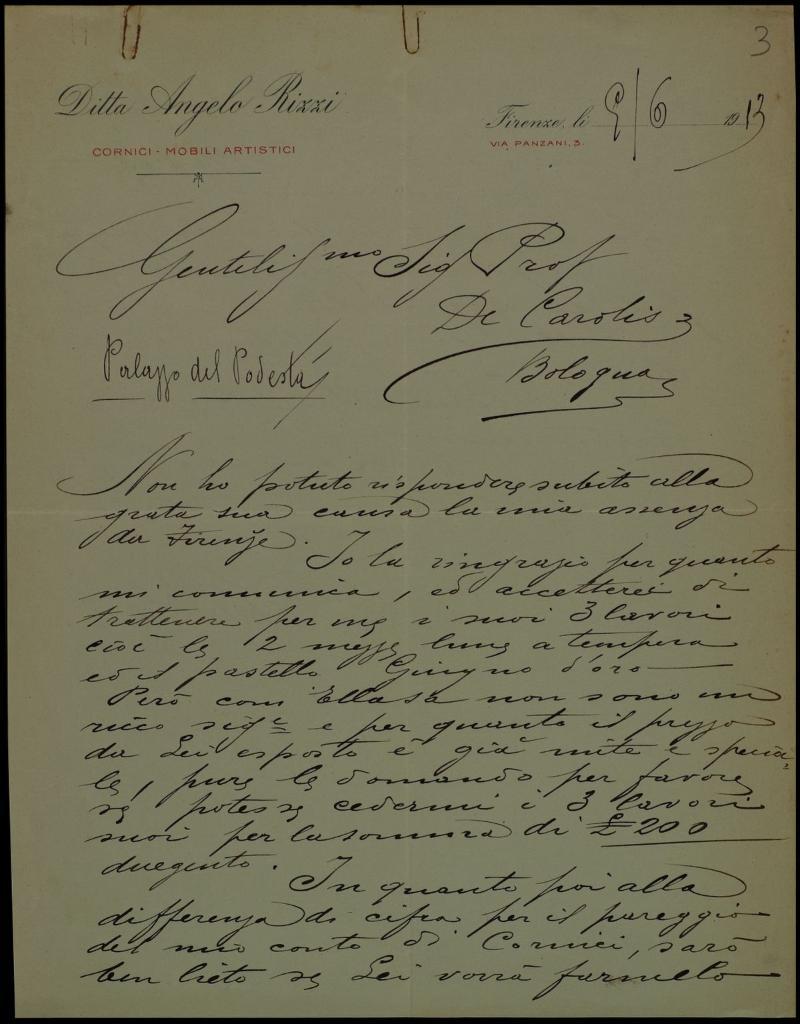 3
Ditta Angelo Rizzi
CORNICI - MOBILI ARTISTICI
Firenze, li 9/6 1913
VIA PANZANI, 3.
Gentilissmo Sig Prof
De Carolis
Palazzo del Podestà
Bologna
Non ho potuto rispondere subito alla
grata sua causa la mia assenza
da Firenze.
Io la ringrazio per quanto
mi comunica, ed accetterei di
trattenere per me i suoi 3 lavori
cioè le 2 mezze lune a tempera
ed il pastello Giugno d'oro
Però com'Ella sa non sono un
ricco sigre e per quanto il prezzo
da Lei esposto è già mite e specia=
le, pure le domando per favore
se potesse cedermi i 3 lavori
suoi per la somma di £ 200
duegento.
In quanto poi alla
differenza di cifra per il pareggio
del mio conto di Cornici, sarò
ben lieto se Lei vorrà farmelo